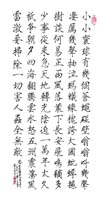 小小寰球有幾個蒼蠅碰壁嗡嗡叫幾聲
淒厲幾聲抽泣螞蟻緣槐誇大國蚍蜉撼
樹談何易正西風落葉下長安飛鳴鏑多
少事從來急天地轉光陰迫一萬年太久
祗爭朝夕四海翻騰雲水怒五洲震蕩風
雷激要掃除一切害人蟲全無敵